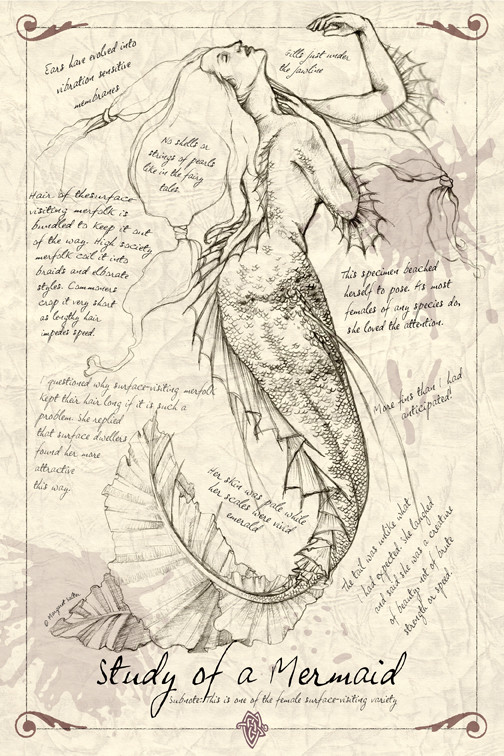 Ears have evolved into
vibration sensitive
membranes
Gills just under
the jawline
No shells or
strings of pearls
like in the fairy
tales.
Hair of the surface
visiting merfolk is
bundled to keep it out
of the way. High society
merfolk coil it into
braids and elborate
styles. Commoners
crop it very short
as lengthy hair
impedes speed.
This specimen beached
herself to pose. As most
females of any species do,
she loved the attention.
I questioned why surface-visiting merfolk
kept their hair long if it is such a
problem. She replied
that surface dwellers
found her more
attractive
this way.
More fins than I had
anticipated!
Her skin was pale while
her scales were vivid
emerald
The tail was unlike what
I had expected. She laughed
and said she was a creature
of beauty not of brute
strength or speed.
© Margaret
Study of a Mermaid
Subnote: This is one of the female surface-visiting variety